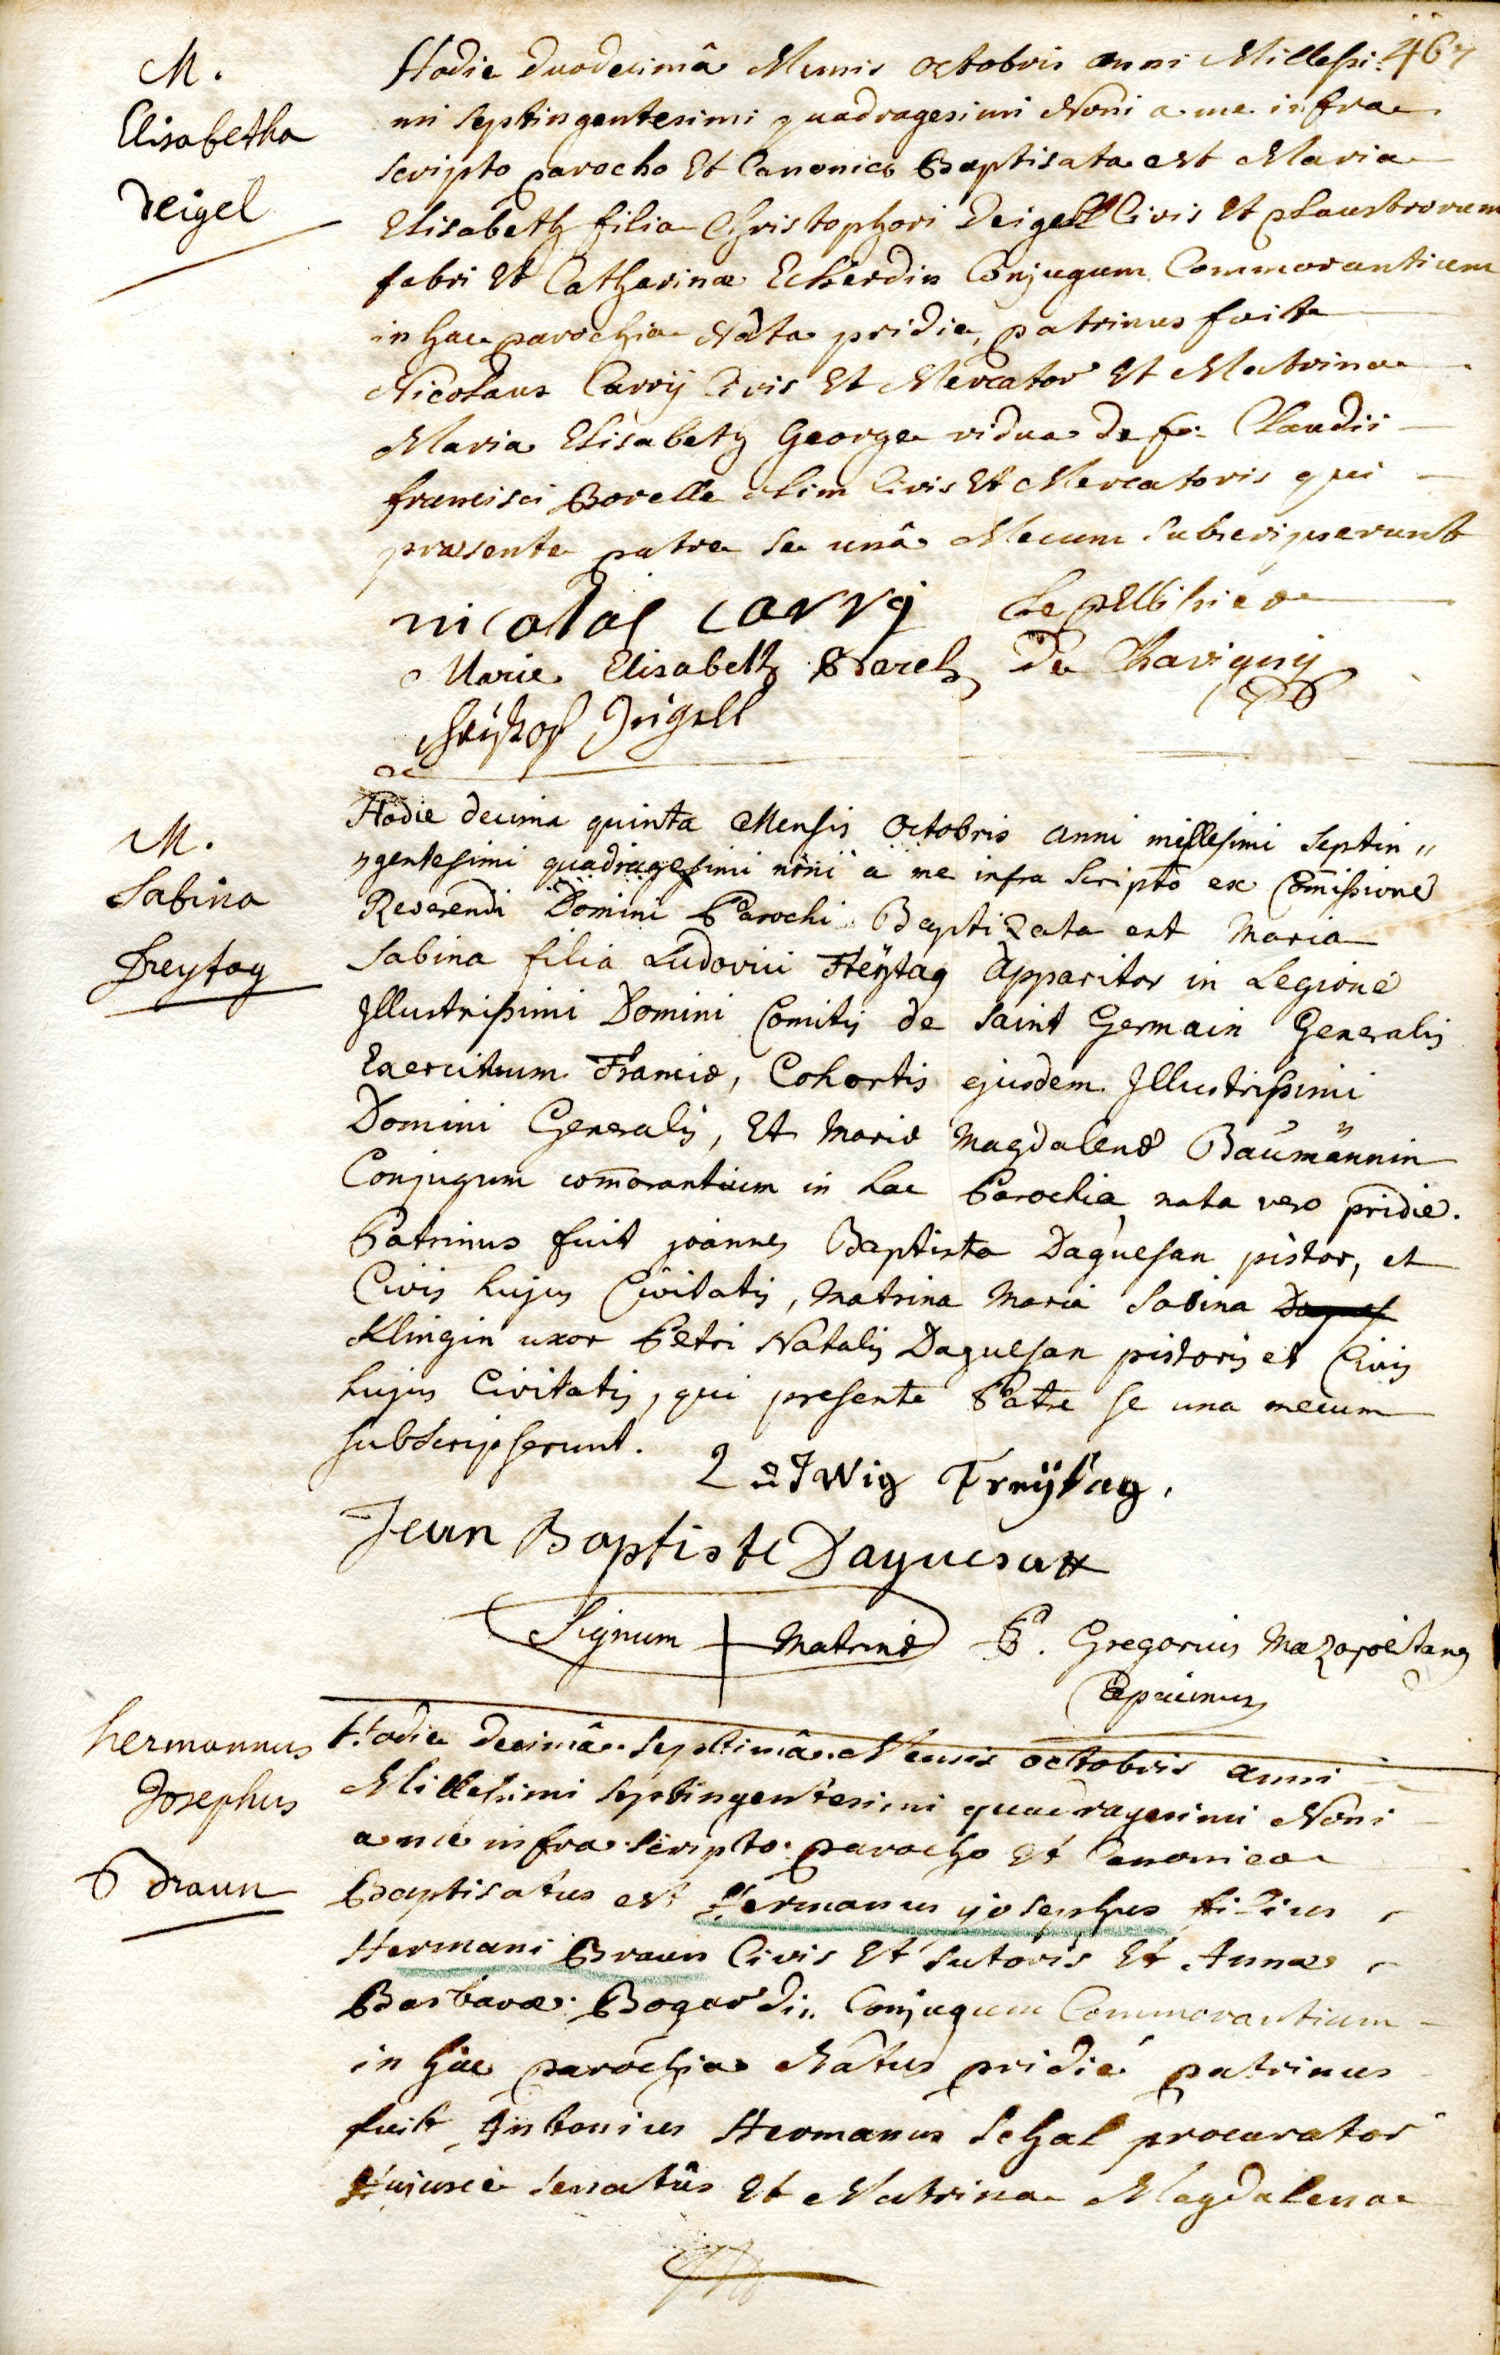 467
M.
Elisabetha
Deigel
Hodie duodecimâ Mensis octobris anni Millesi-
mi septingentesimi quadragesimi Noni a me infra
scripto parocho Et Canonico Baptisata est Maria
Elisabeth filia Christophori Deigell Civis Et plaustrorum
fabri Et Catharinæ Eckerdin Conjugum Commorantium
in hac parochia Nata pridie, patrinus fuit
Nicolaus Carrÿ Civis Et Mercator Et Matrina
Maria Elisabeth George vidua def. Claudii
francisci Borelle olim Civis Et Mercatoris qui
præsente patre se unâ Mecum subscripserunt
nicolas carrÿ
Marie Elisabeth Borel De Chavignÿ
M.
Sabina
Freytag
Hodie decima quinta Mensis Octobris anni millesimi Septin"
ngentesimi quadragesimi noni a me infra scripto ex Comissione
Reverendi Domini Parochi Baptizata est Maria
Sabina filia Ludovici Freÿtag Apparitor in Legione
Illustrissimi Domini Comitis de Saint Germain Generalis
Exercituum Franciæ, Cohortis ejusdem Illustrissimi
Domini Generalis, Et Mariæ Magdalenæ Baumännin
Conjugum comorantium in hac Parochia nata vero pridie.
Patrinus fuit joannes Baptista Daguesan pistor, et
Civis hujus Civitatis, Matrina Maria Sabina Dagues
Klingin uxor Petri Natalis Daguesan pistoris et Civis
hujus Civitatis, qui presente Patre se una mecum
subscripserunt.
Ludwig Freÿtag.
Jean Baptiste Daguesan
Signum + Matrinæ P. Gregorius
Capucinus
hermannus
Josephus
Braun
Hodie decimâ septimâ Mensis octobris anni
Millesimi septingentesimi quadragesimi Noni
a me infra scripto parocho Et Canonico
Baptisatus est Hermanus josephus filius
Hermani Braun Civis Et sutoris Et Annæ
Barbaræ Bogardin Conjugum Commorantium
in hac parochia Natus pridie patrinus
fuit Antonius Hermanus Schal procurator
hujusce senatûs Et Matrina Magdalena